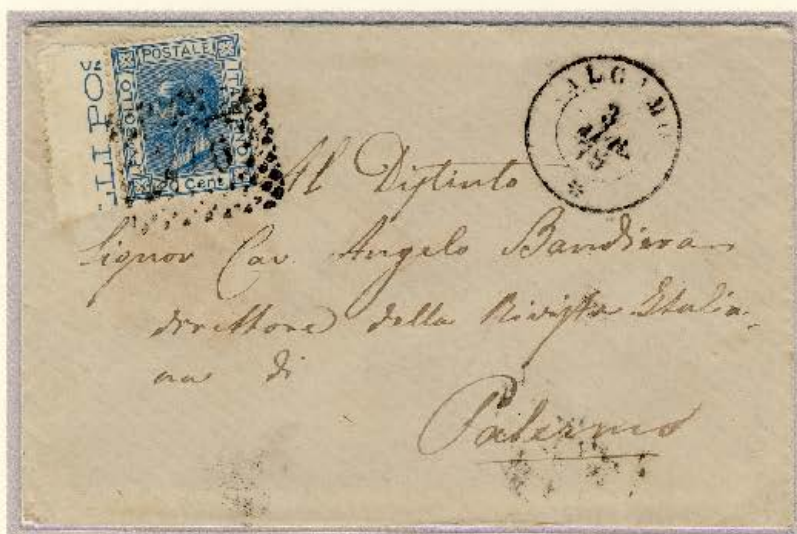 LI POS
POSTALE
BOLLO
ITALIANO
20 Cent
ALCAMO
3
79
Al Distinto
Signor Cav. Angelo Bandiera
direttore della Rivista Italia-
na di
Palermo